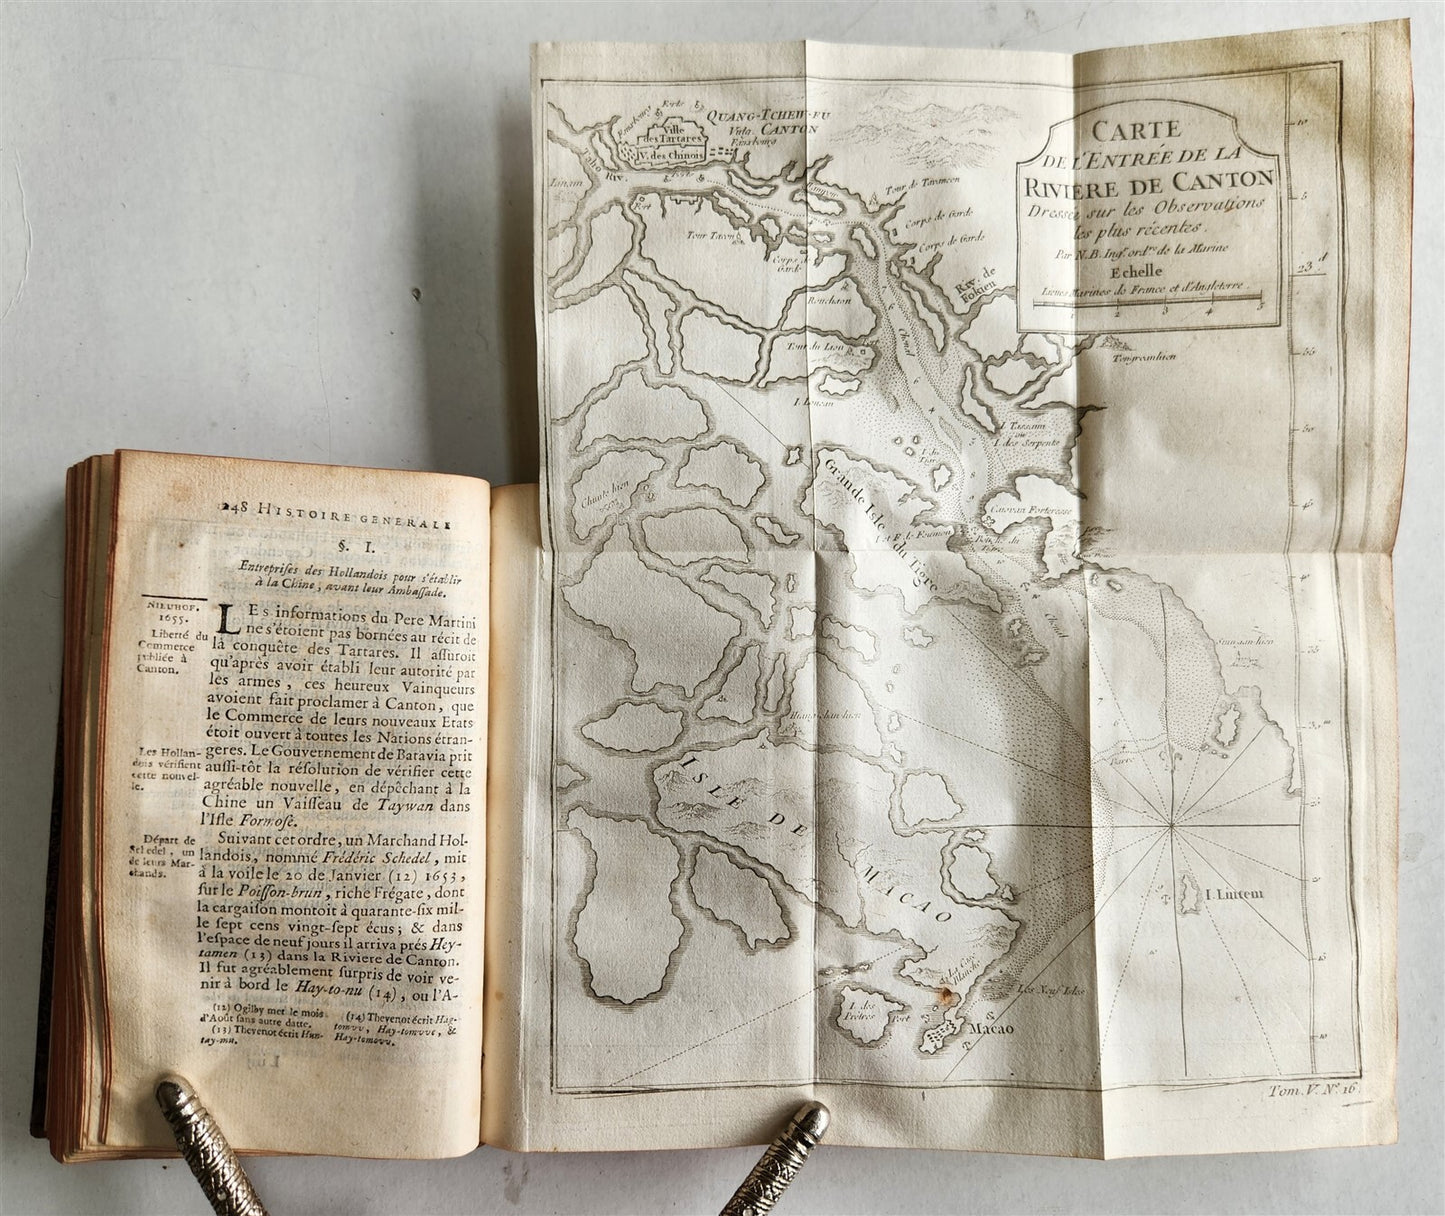 248 HISTOIRE GENERALE
§. I.
Entreprises des Hollandois pour s'établir
à la Chine, avant leur Ambassade.
NIEUHOF.
1655.
Liberté du
Commerce
publiée à
Canton.
LEs informations du Pere Martini
ne s'étoient pas bornées au récit de
la conquête des Tartares. Il assuroit
qu'après avoir établi leur autorité par
les armes, ces heureux Vainqueurs
avoient fait proclamer à Canton, que
le Commerce de leurs nouveaux Etats
étoit ouvert à toutes les Nations étran-
geres. Le Gouvernement de Batavia prit
aussi-tôt la résolution de vérifier cette
agréable nouvelle, en dépêchant à la
Chine un Vaisseau de Taywan dans
l'Isle Formose.
Les Hollan-
dois vérifient
cette nouvel-
le.
Suivant cet ordre, un Marchand Hol-
landois, nommé Frédéric Schedel, mit
à la voile le 20 de Janvier (12) 1653,
sur le Poisson-brun, riche Frégate, dont
la cargaison montoit à quarante-six mil-
le sept cens vingt-sept écus; & dans
l'espace de neuf jours il arriva prés Hey-
tamen (13) dans la Riviere de Canton.
Il fut agréablement surpris de voir ve-
nir à bord le Hay-to-nu (14), ou l'A-
Départ de
Schedel, un
de leurs Mar-
chands.
(12) Ogilby met le mois
d'Août sans autre datte.
(13) Thevenot écrit Hun-
tay-mu.
(14) Thevenot écrit Hag-
tomvu, Hay-tomvve, &
Hay-tomovu.
CARTE
DE L'ENTRÉE DE LA
RIVIERE DE CANTON
Dressée sur les Observations
les plus récentes.
Par N.B. Ingr. ordre. de la Marine
Echelle
Lieues Marines de France et d'Angleterre.
1 2 3 4 5
QUANG-TCHEW-FU
Vulg. CANTON
Forts
Fauxbourg
Fauxbourg
Ville
des Tartares
V. des Chinois
Taho Riv.
Forts
Fort
Tour de Tavancen
Corps de Garde
Corps de Garde
Corps de
Garde
Riv. de
Fokien
Chenal
I. Lonsan
I. Tassam
ou
I. des Serpents
Grande Isle du Tigre
Chenal
ISLE DE MACAO
I. Lintem
Les Neuf Isles
I. des
Prêtres
Port
Macao
10
5
23.d
55
50
45
40
35
15
10
Tom. V. No. 16.